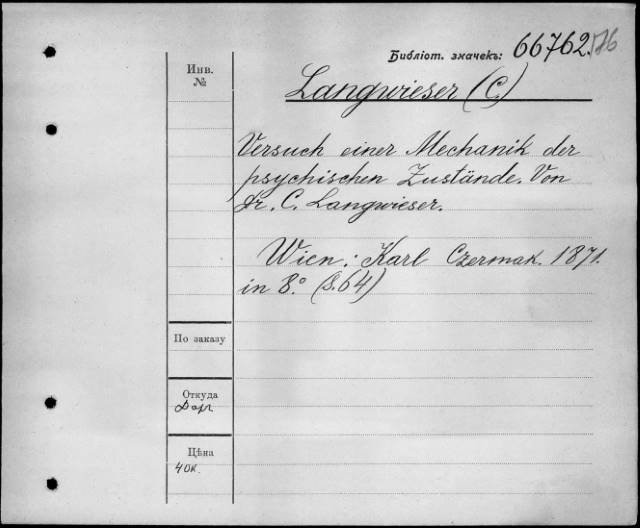 Библіот. значекъ: 66762.
Инв.
№
Langwieser (C.)
Versuch einer Mechanik der
psychischen Zustände. Von
Dr. C. Langwieser.
Wien: Karl Czermak. 1871.
in 8.° (S. 64)
По заказу
Откуда
Цѣна
40к.